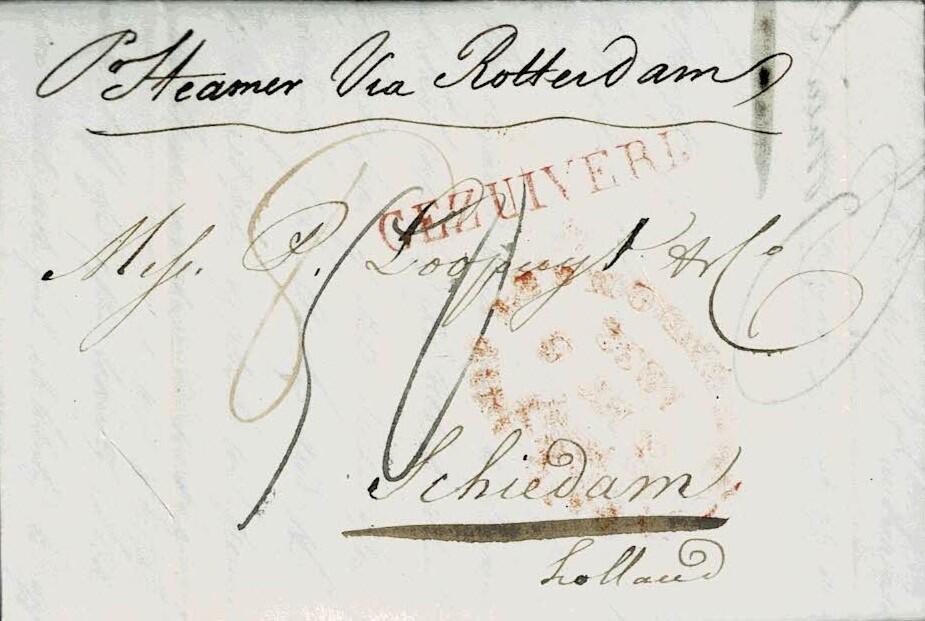 Pr Steamer Via Rotterdam
GEZUIVERD
Mess. P. Loopuyt & Co
50
Schiedam.
Holland